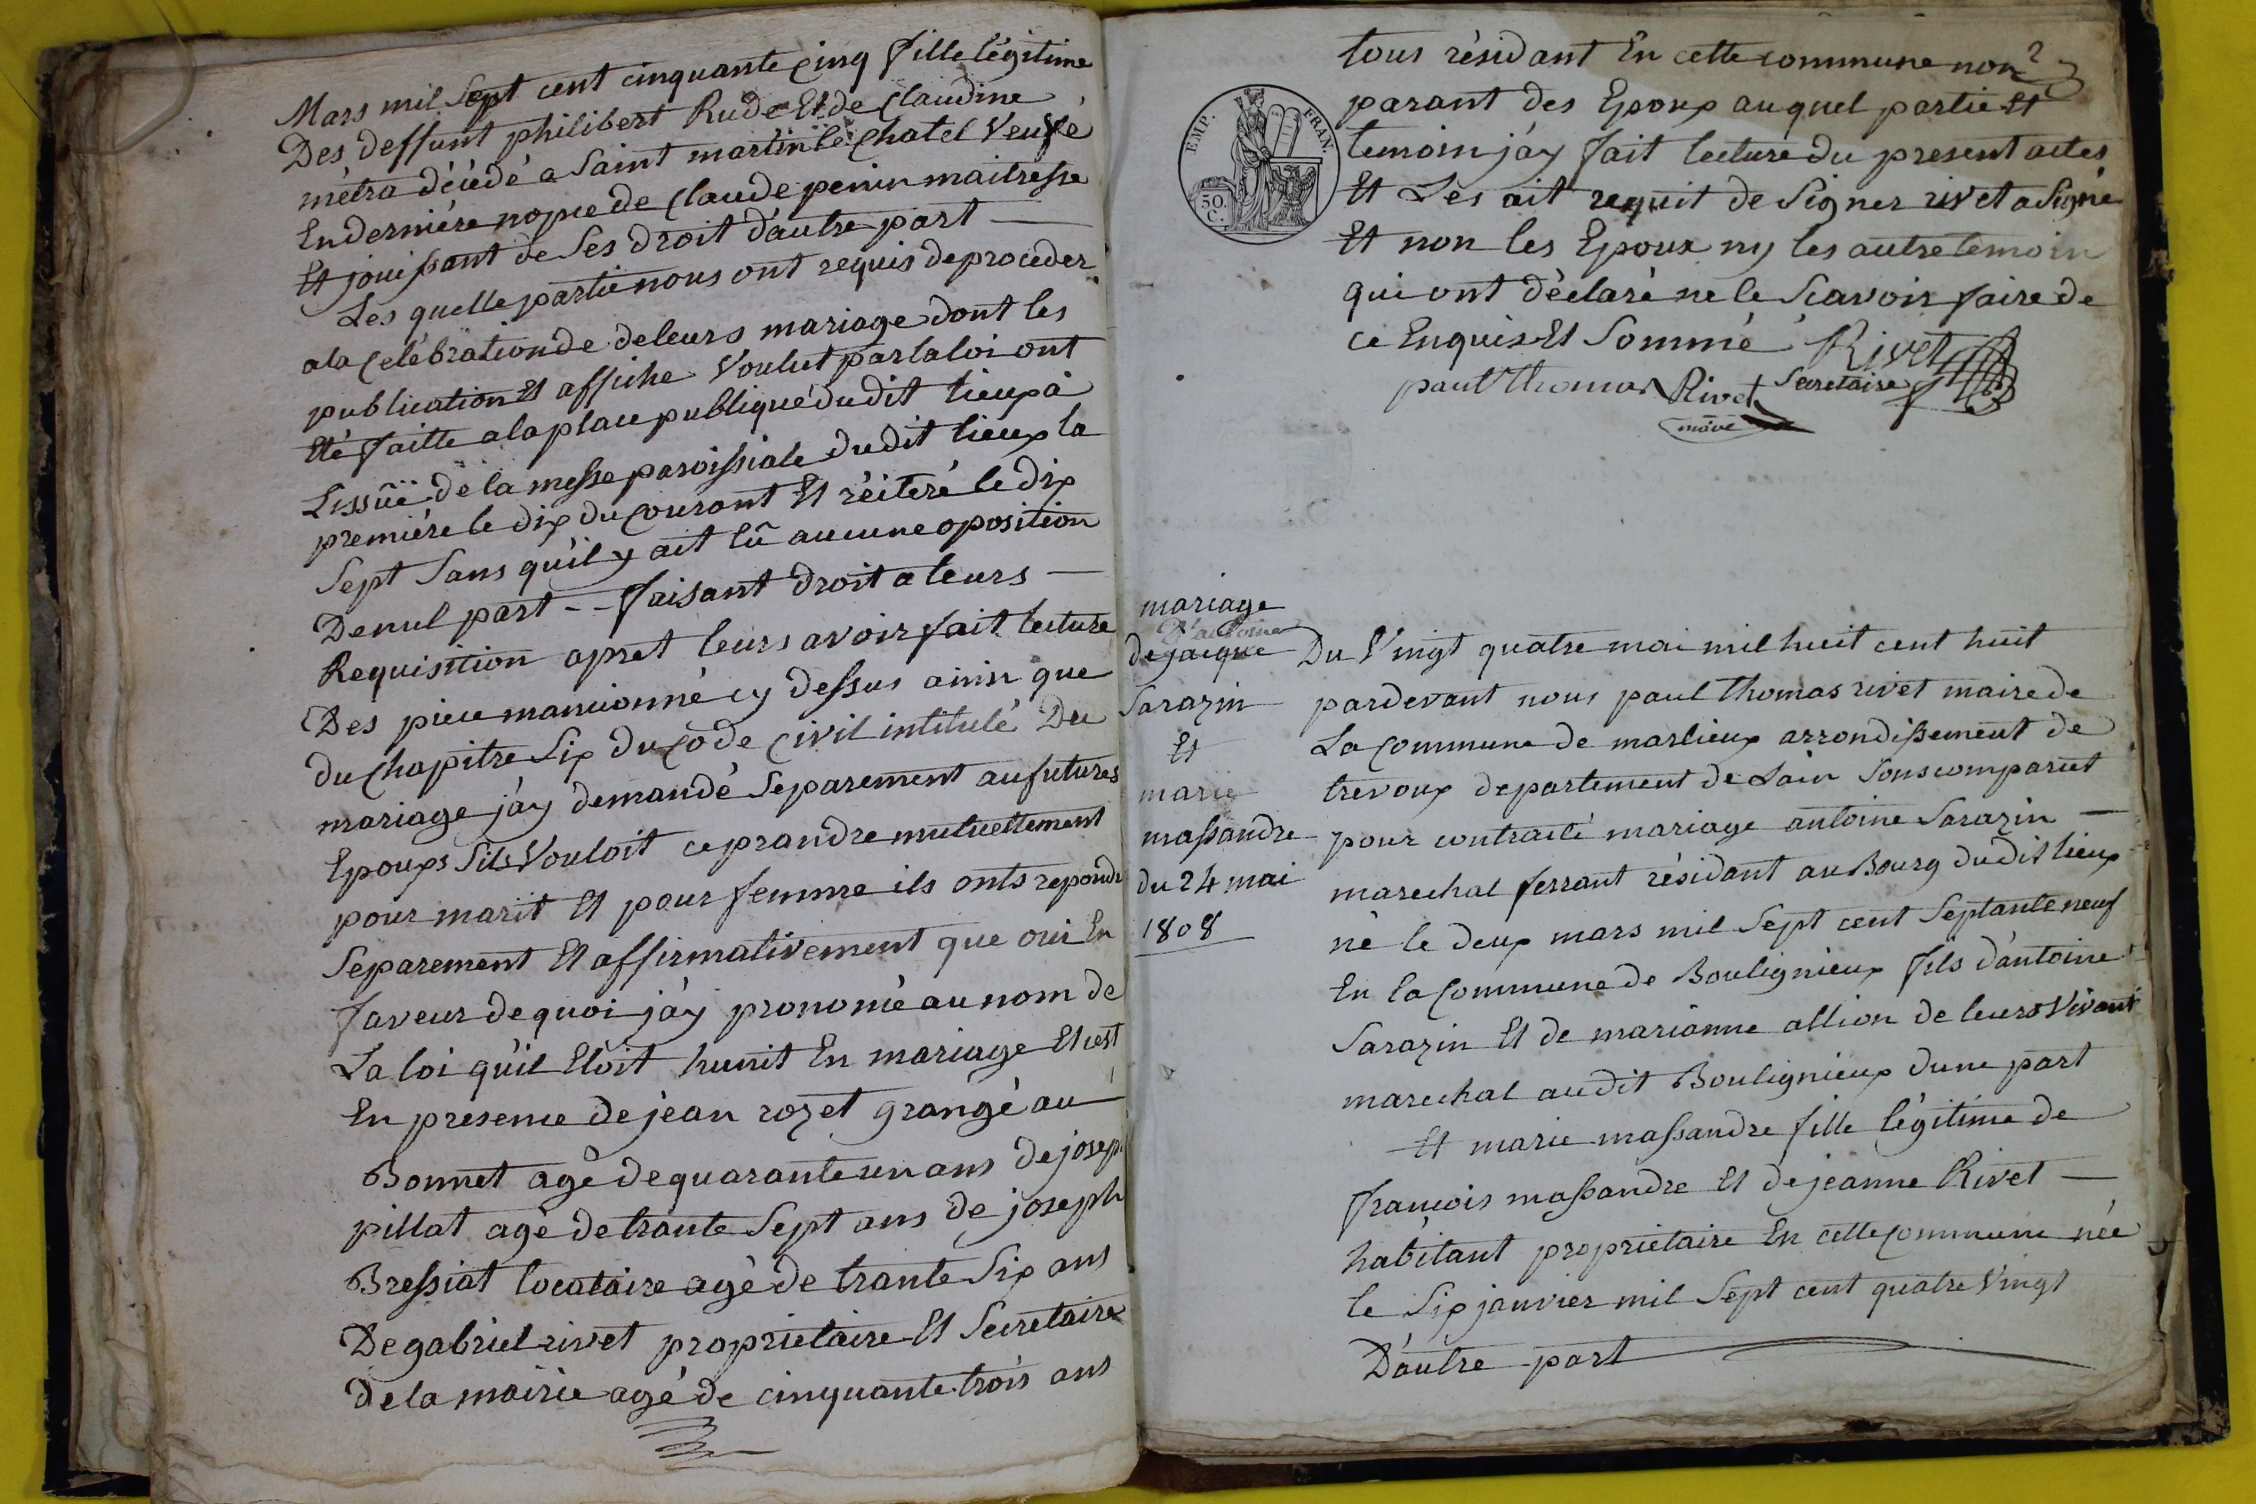 Mars mil Sept cent cinquante cinq fille légitime
Des deffunt philibert Rude Et de Claudine
métra décédé a Saint martin le Chatel Veuve
En derniére nopce de Claude penin maitresse
Et jouissant de Ses droit d'autre part —
Les quelle partie nous ont requis de proceder
a la Celébration de de leurs mariage dont les
publication Et affiche Voulut par la loi ont
Eté faitte a la place publique du dit lieux à
Lissüe de la messe paroissiale du dit lieux la
premiére le dix du Courant Et réiteré le dix
Sept Sans qu'il y ait Eû aucune oposition
De nul part -- faisant droit a leurs —
Requisition apret leurs avoir fait lecture
Des piece mancionné cy dessus ainsi que
du Chapitre Six du Côde Civil intitulé Du
mariage j'ay demandé Separement au futures
Epouxs Sils Vouloit ce prandre mutuellement
pour marit Et pour femme ils onts repondu
Separement Et affirmativement que oui En
faveur de quoi j'ay prononcé au nom de
La loi qu'il Etoit hunit En mariage Et cest
En presence de jean rozet grangé au
Bonnet agé de quarante un ans de joseph
pillat agé de trante Sept ans de joseph
Bressiat locataire agé de trante Six ans
De gabriel rivet proprietaire Et Secretaire
de la mairie agé de cinquante trois ans
EMP. FRAN.
50.
C.
tous résidant En cette commune non
parant des Epoux au quel partie Et
temoin j'ay fait lecture du present actes
Et Les ait requit de Signer rivet a Signé
Et non les Epoux ny les autre temoin
qui ont déclaré ne le Scavoir faire de
ce Enquis Et Sommé Rivet
paul Thomas Rivet Secretaire
maire
mariage
D'antoine
de jacque
Sarazin
Et
marie
massandre
du 24 mai
1808
Du Vingt quatre mai mil huit cent huit
pardevant nous paul Thomas rivet maire de
La Commune de marlieux arrondissement de
trevoux departement de Lain Sons comparut
pour contracté mariage antoine Sarazin —
marechal ferrant résidant au Bourg du dit lieux
né le deux mars mil Sept cent Septante neuf
En la Commune de Boulignieux fils d'antoine
Sarazin Et de marianne allion de leurs Vivant
marechal au dit Boulignieux dune part
Et marie massandre fille légitime de
francois massandre Et de jeanne Rivet —
habitant proprietaire En cette Commune née
le Six janvier mil Sept cent quatre Vingt
D'autre part